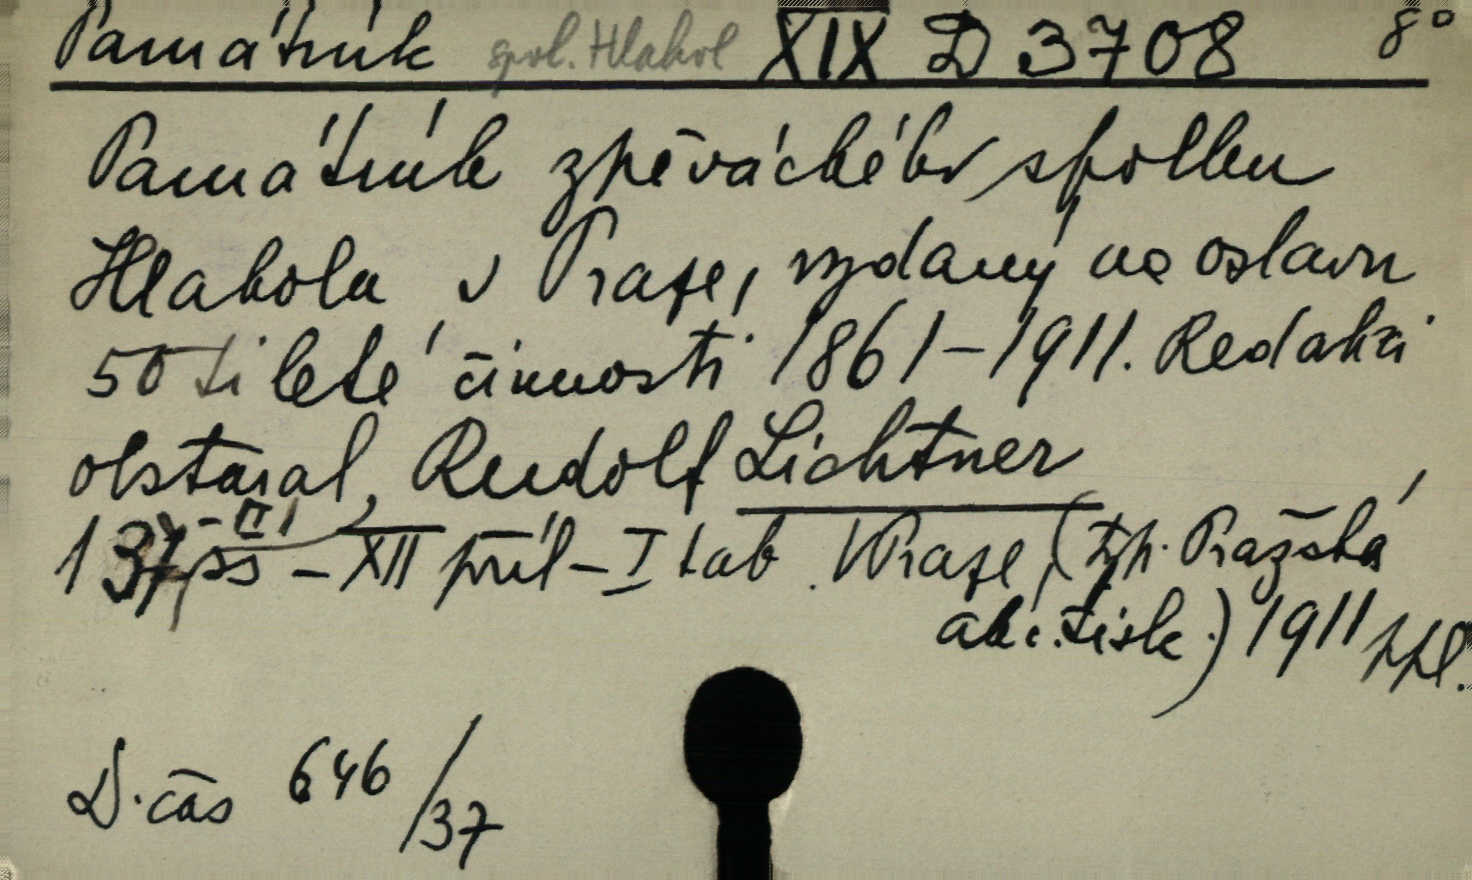 Památník spol. Hlahol XIX D 3708 8°
Památník zpěváckého spolku
Hlaholu v Praze, vydaný na oslavu
50 ti leté činnosti 1861-1911. Redakci
obstaral, Rudolf Lichtner
137 - II ss - XII příl - I tab. V Praze, (typ. Pražská
akc. tisk.) 1911 ppl.
D. čas 646/37